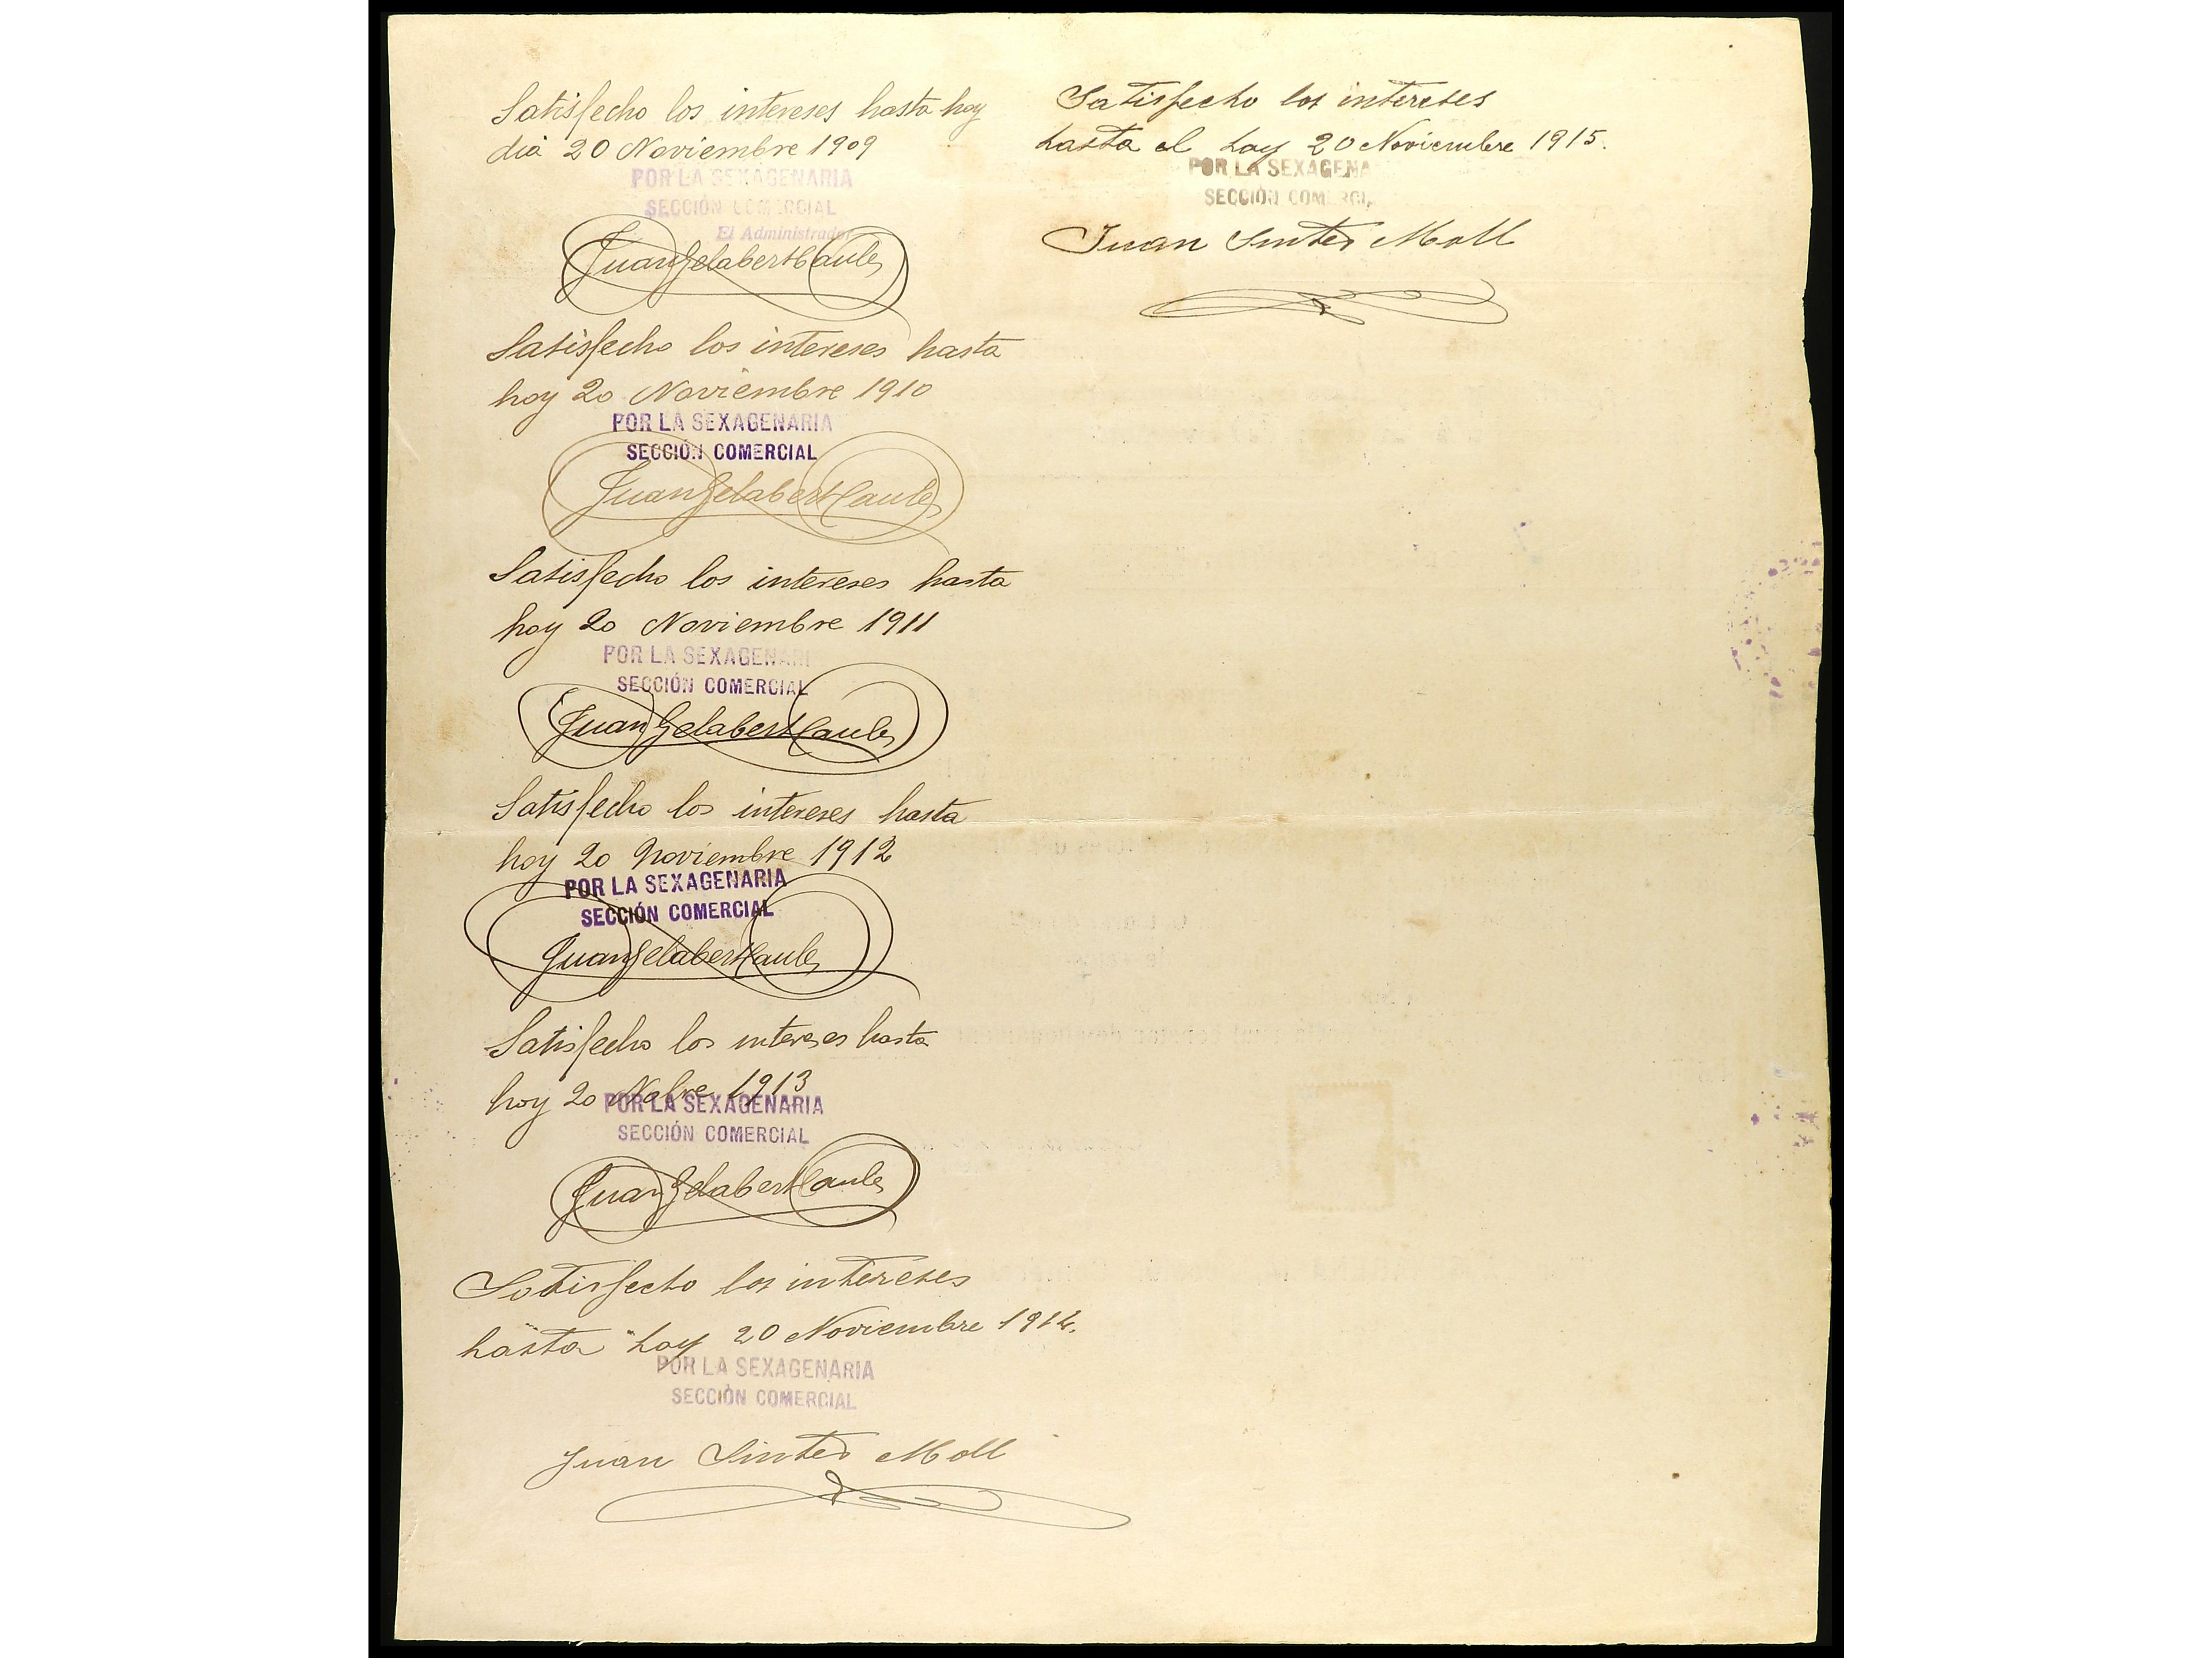 Satisfecho los intereses hasta hoy
dia 20 Noviembre 1909
POR LA SEXAGENARIA
SECCIÓN COMERCIAL
El Administrador
Juan Gelabert Caules
Satisfecho los intereses hasta
hoy 20 Noviembre 1910
POR LA SEXAGENARIA
SECCIÓN COMERCIAL
Juan Gelabert Caules
Satisfecho los intereses hasta
hoy 20 Noviembre 1911
POR LA SEXAGENARI
SECCIÓN COMERCIAL
Juan Gelabert Caules
Satisfecho los intereses hasta
hoy 20 Noviembre 1912
POR LA SEXAGENARIA
SECCIÓN COMERCIAL
Juan Gelabert Caules
Satisfecho los intereses hasta
hoy 20 Nobre 1913
POR LA SEXAGENARIA
SECCIÓN COMERCIAL
Juan Gelabert Caules
Satisfecho los intereses
hasta hoy 20 Noviembre 1914.
POR LA SEXAGENARIA
SECCIÓN COMERCIAL
Juan Sintes Moll
Satisfecho los intereses
hasta el hoy 20 Noviembre 1915.
POR LA SEXAGENA
SECCIÓN COMERCI
Juan Sintes Moll